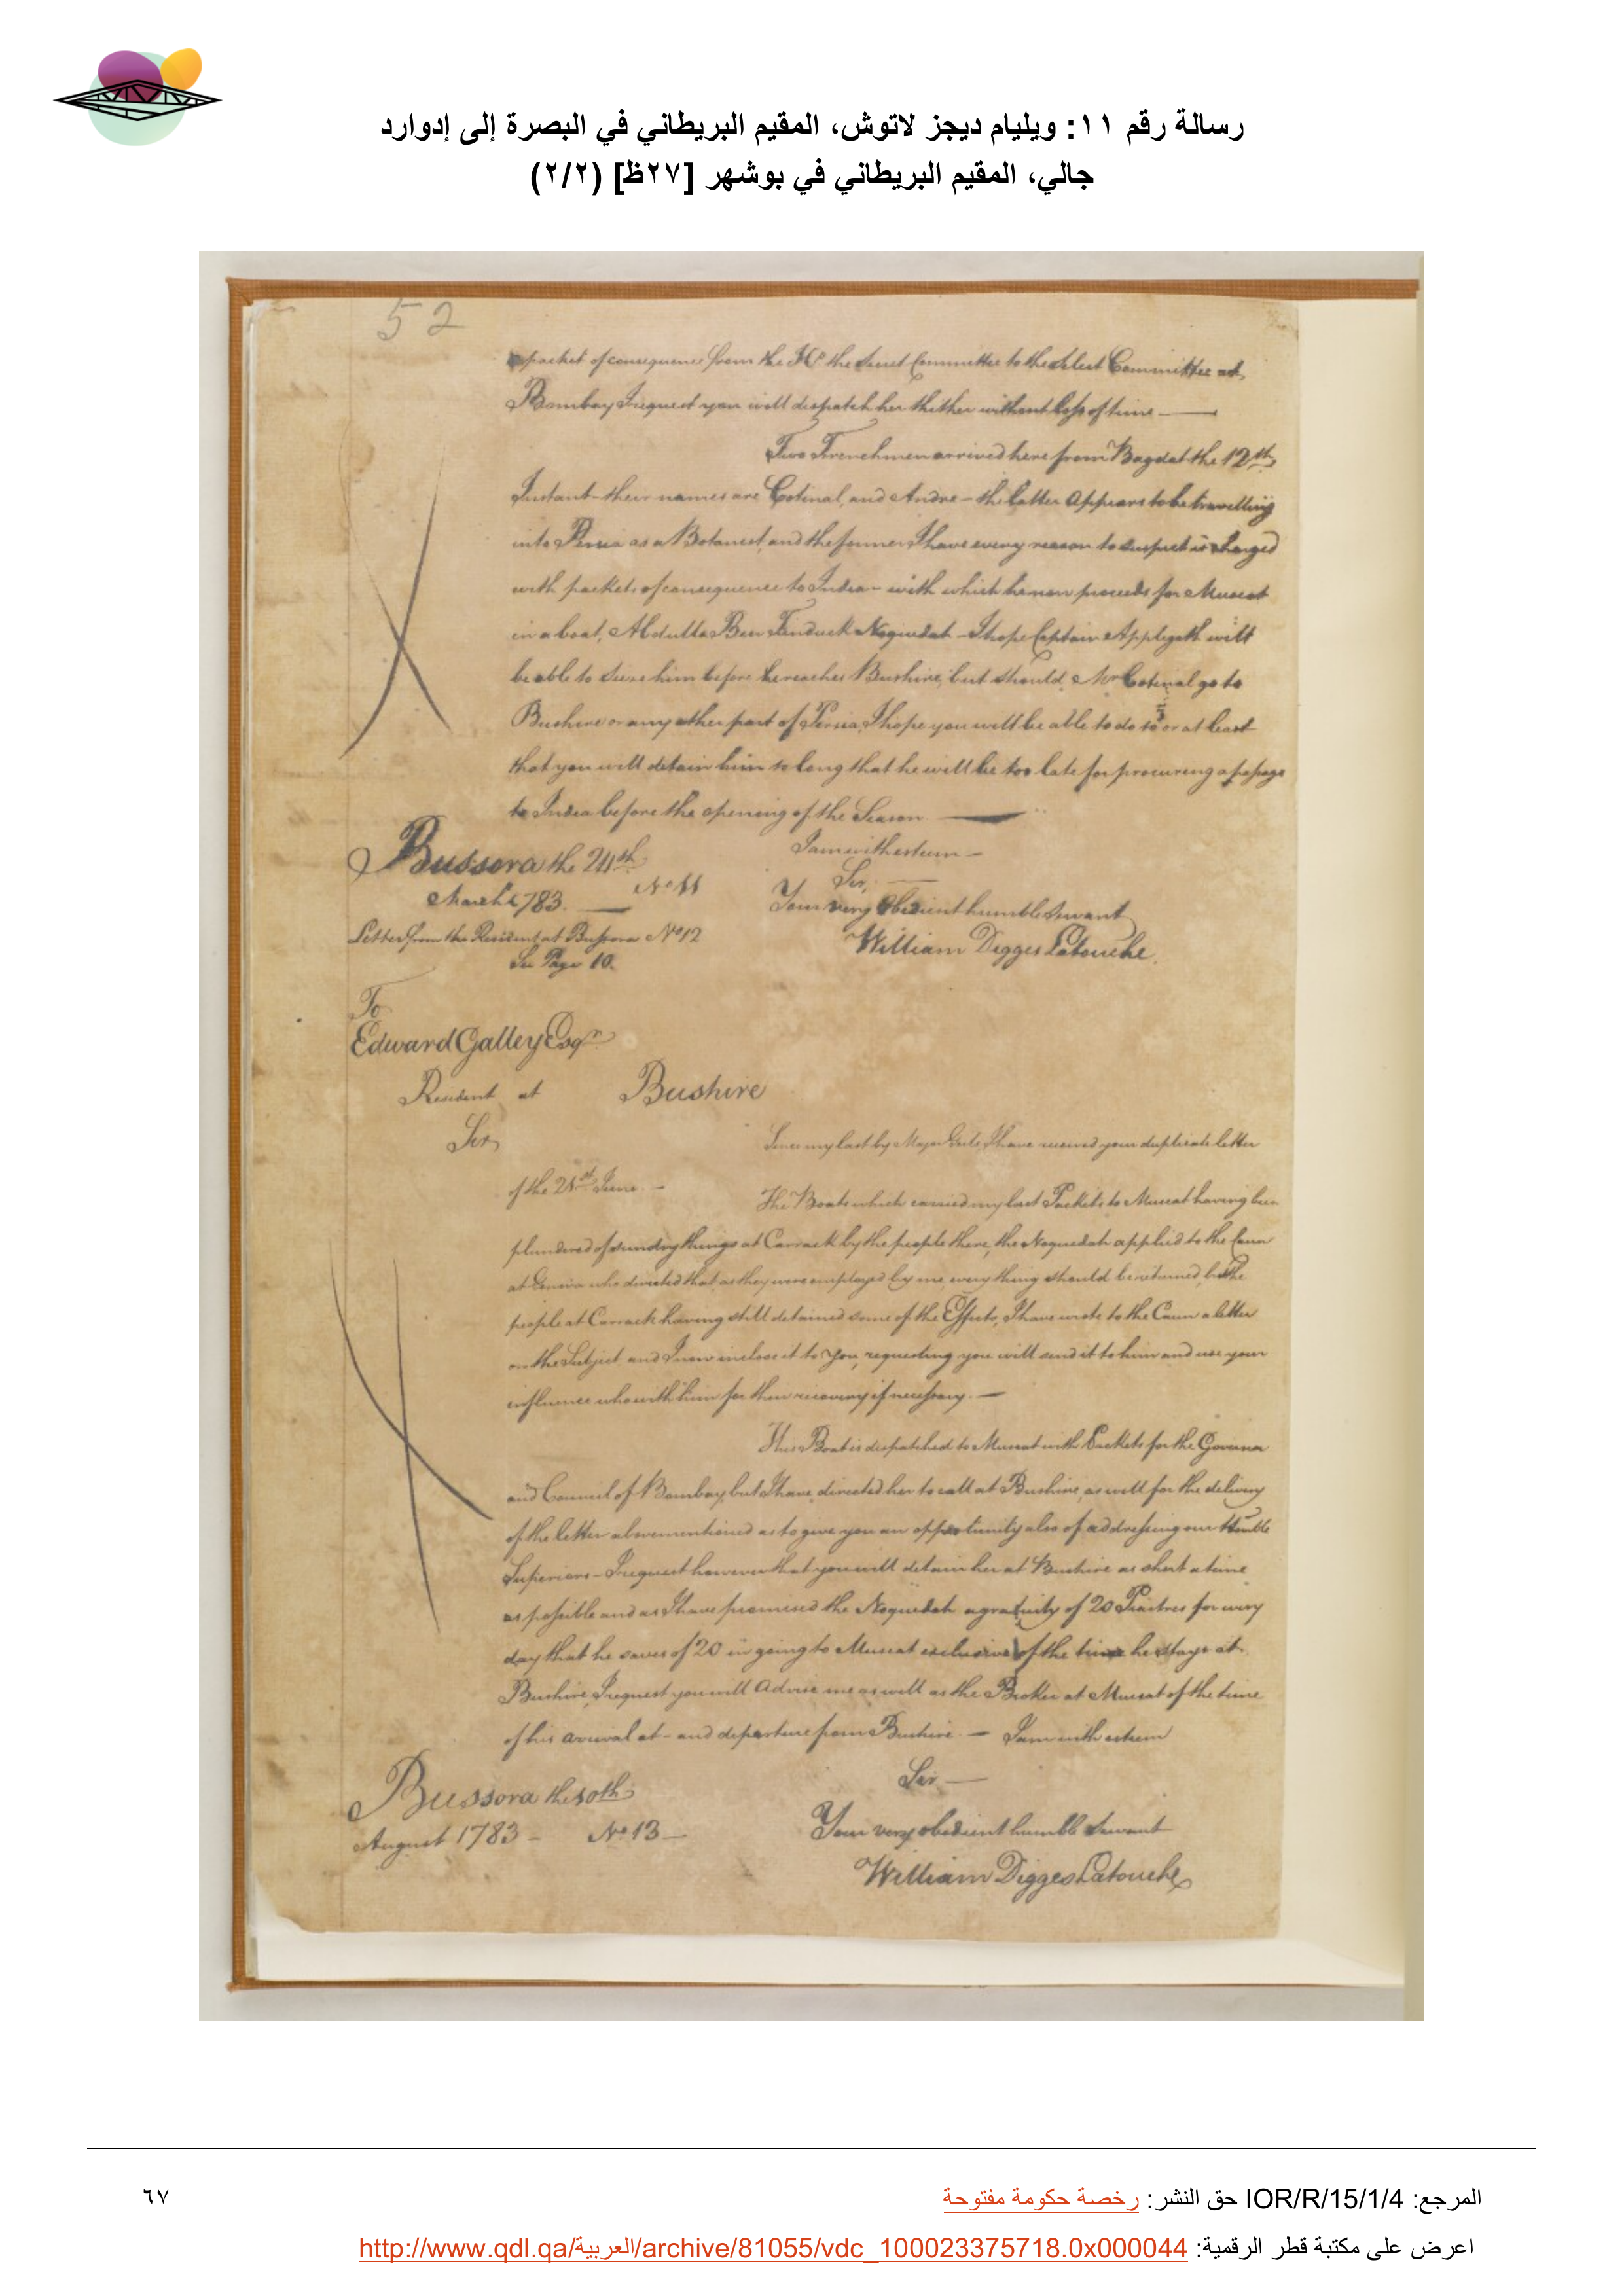 رسالة رقم ١١: ويليام ديجز لاتوش، المقيم البريطاني في البصرة إلى إدوارد
جالي، المقيم البريطاني في بوشهر [٢٧ظ] (٢/٢)
52
packet of consequence from the Hble the Secret Committee to the Select Committee at
Bombay I request you will dispatch her thither without loss of time —
Two Frenchmen arrived here from Bagdat the 12th
Instant - their names are Cotinal, and Andre - the latter Appears to be travelling
into Persia as a Botanist, and the former I have every reason to suspect is charged
with packets of consequence to India - with which he now proceeds for Muscat
in a boat, Abdulla Ben Noquedah - I hope Captain Applegath will
be able to seize him before he reaches Bushire, but should Mr Cotinal go to
Bushire or any other part of Persia, I hope you will be able to do so or at least
that you will detain him so long that he will be too late for procuring a passage
to India before the opening of the Season —
I am with esteem -
Bussora the 24th
Sir,
March 1783. — No 11
Your very Obedient humble Servant
Letter from the Resident at Bussora No 12
William Digges Latouche.
See Page 10.
To
Edward Galley Esqr
Resident at Bushire
Sir,
Since my last by Major I have received your duplicate letter
of the 21st June. -
The Boats which carried my last Packets to Muscat having been
plundered of sundry things at Carrack by the people there, the Noquedah applied to the Caun
at who directed that, as they were employed by me every thing should be returned, but the
people at Carrack having still detained some of the Effects, I have wrote to the Caun a letter
on the Subject and I now inclose it to You, requesting you will send it to him and use your
influence who with him for their recovery if necessary. —
This Boat is dispatched to Muscat with Packets for the Governor
and Council of Bombay, but I have directed her to call at Bushire, as well for the delivery
of the letter abovementioned as to give you an opportunity also of addressing our Hoanble
Superiors - I request however that you will detain her at Bushire as short a time
as possible and as I have promised the Noquedah a gratuity of 20 Piastres for every
day that he saves of 20 in going to Muscat exclusive of the time he stays at
Bushire, I request you will Advise me as well as the Broker at Muscat of the time
of his arrival at - and departure from Bushire. — I am with esteem
Sir —
Bussora the
Your very obedient humble Servant
August 1783 - No 13 -
William Digges Latouche
المرجع: IOR/R/15/1/4 حق النشر: رخصة حكومة مفتوحة
٦٧
اعرض على مكتبة قطر الرقمية: http://www.qdl.qa/العربية/archive/81055/vdc_100023375718.0x000044